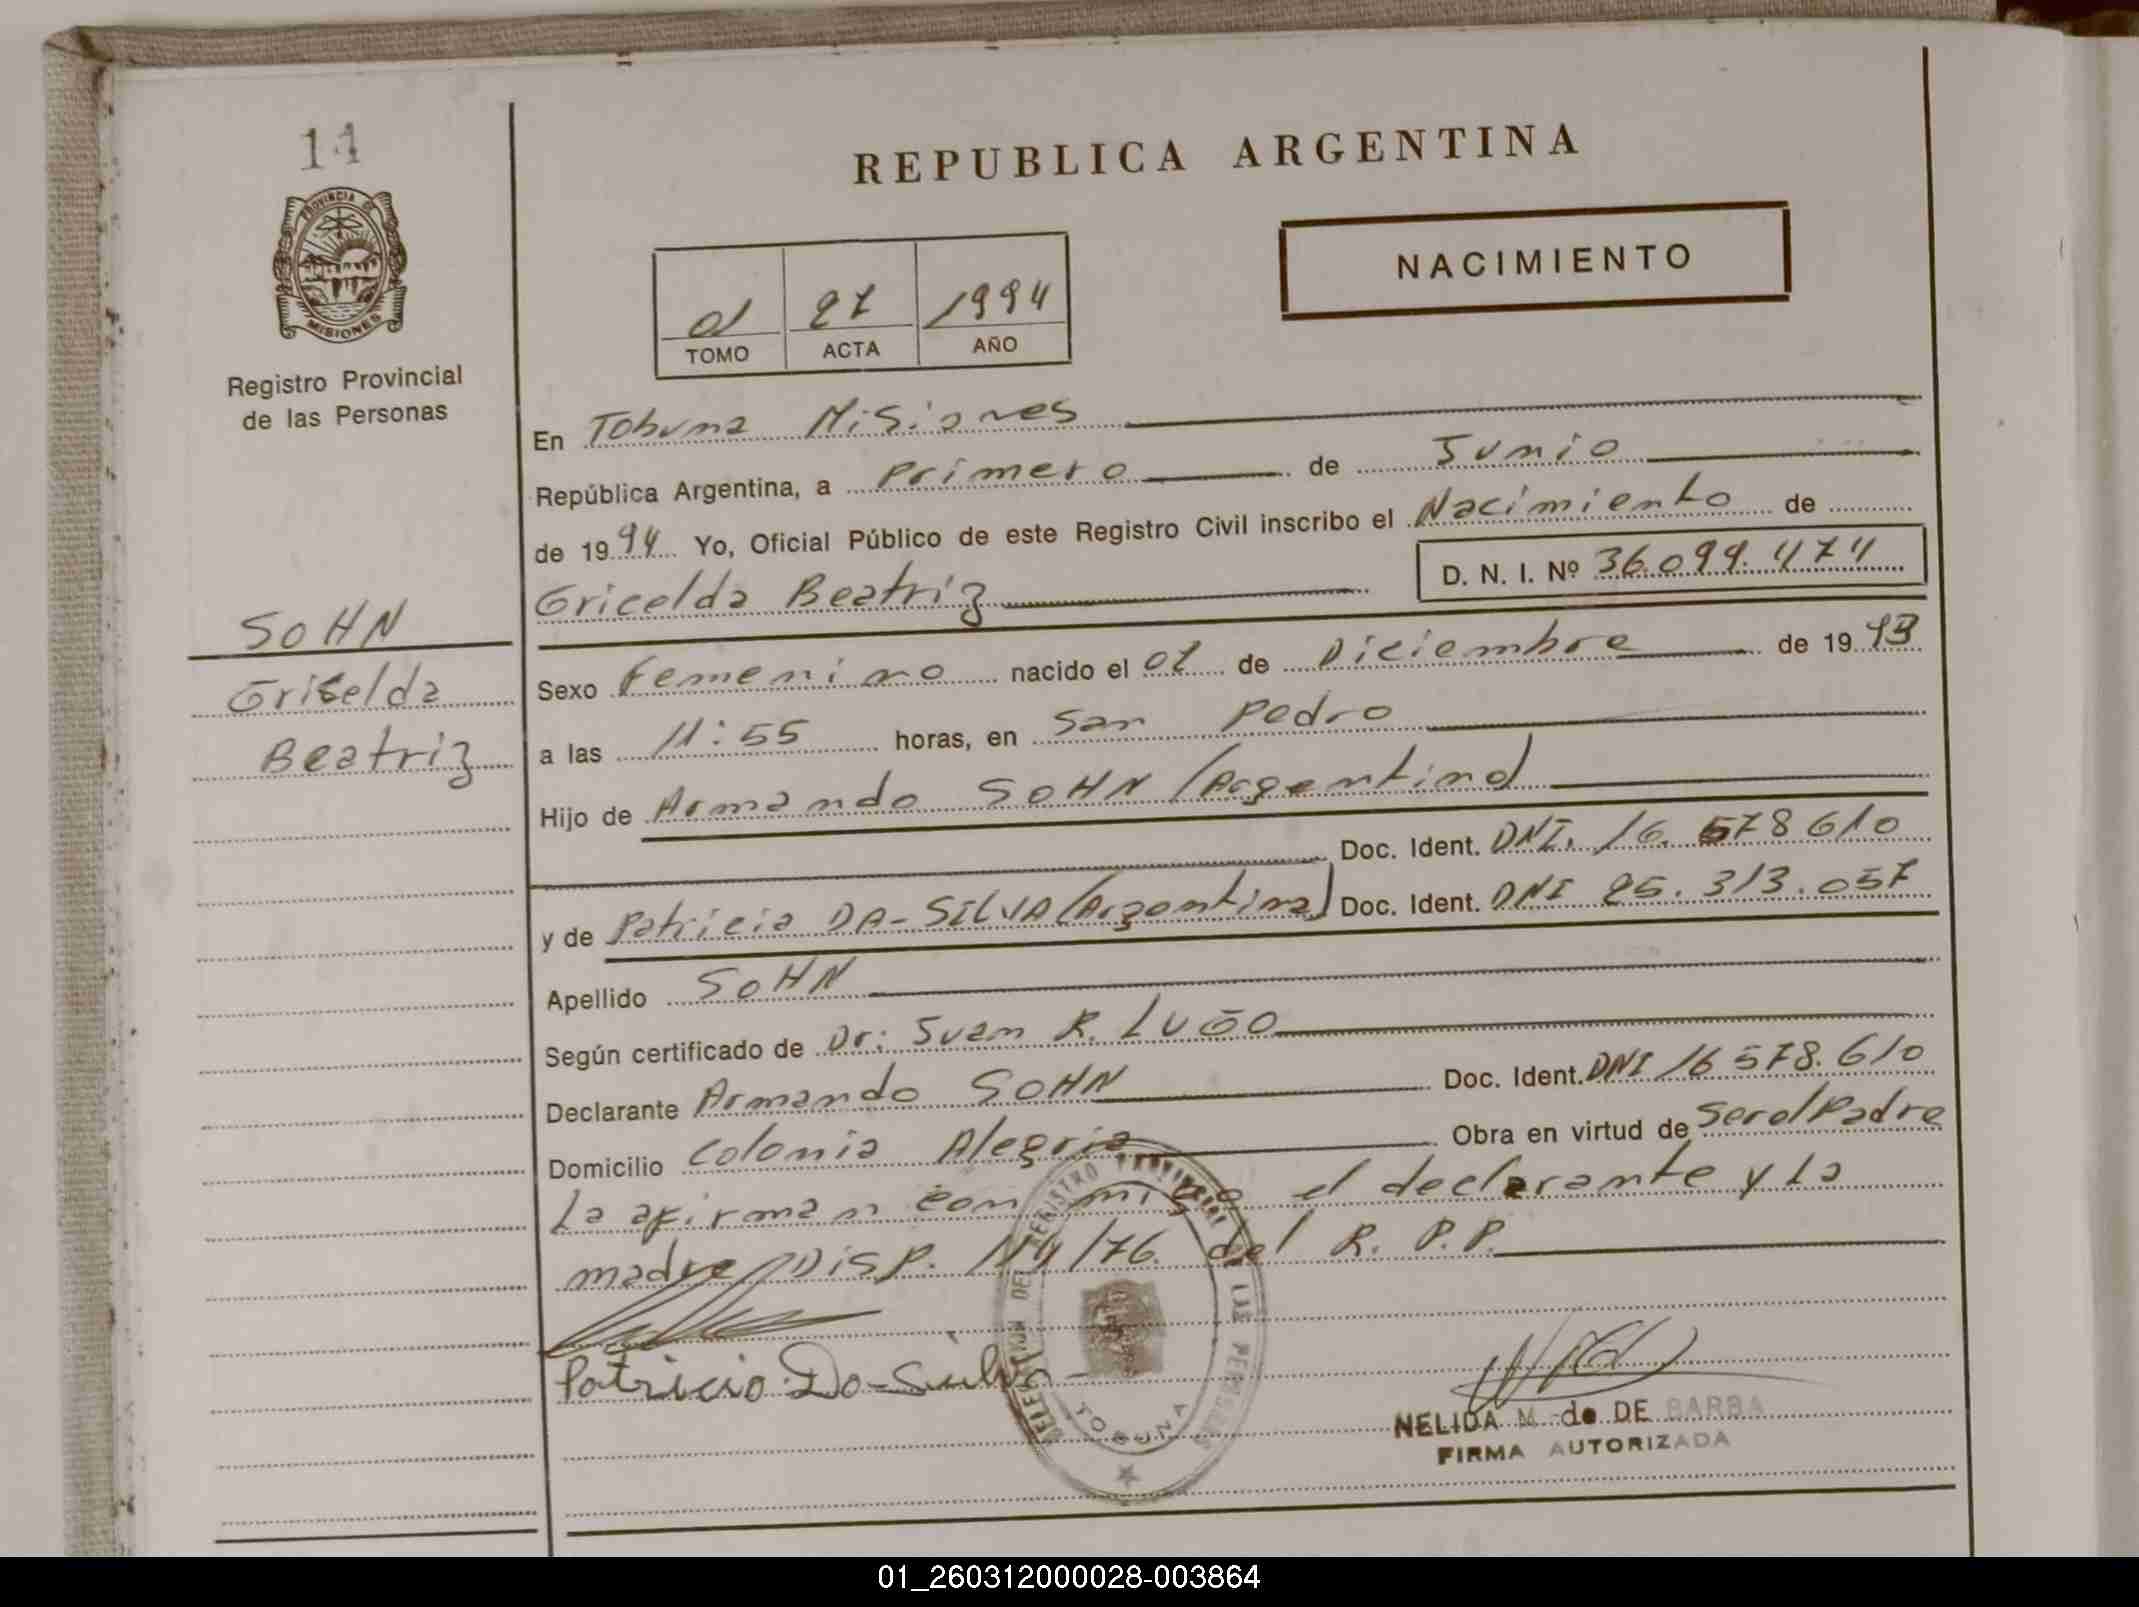 14
PROVINCIA DE
MISIONES
Registro Provincial
de las Personas
SOHN
Griselda
Beatriz
REPUBLICA ARGENTINA
01 27 1994
TOMO ACTA AÑO
NACIMIENTO
En Tobuna Misiones
República Argentina, a Primero de Junio
de 1994 Yo, Oficial Público de este Registro Civil inscribo el Nacimiento de
Gricelda Beatriz D. N. I. Nº 36.099.474
Sexo Femenino nacido el 07 de Diciembre de 1993
a las 11:55 horas, en San Pedro
Hijo de Armando SOHN (Argentino)
Doc. Ident. DNI. 16.578610
y de Patricia DA-SILVA (Argentina) Doc. Ident. DNI 25.313.057
Apellido SOHN
Según certificado de Dr: Juan R. LUGO
Declarante Armando SOHN Doc. Ident. DNI 16578.610
Domicilio Colonia Alegria Obra en virtud de Ser el Padre
La afirman conmigo el declarante y La
madre DISP. 114/76. del R. P. P.
Patricia Da-Silva
DELEGACION DEL REGISTRO PROVINCIAL DE LAS PERSONAS
TOBUNA
NELIDA M. de DE BARBA
FIRMA AUTORIZADA
01_260312000028-003864